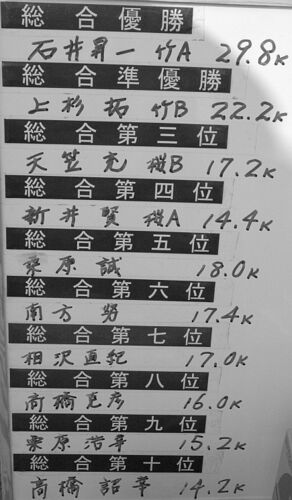 総合優勝
石井昇一 竹A 29.8K
総合準優勝
上杉 拓 竹B 22.2K
総合第三位
天笠 充 機B 17.2K
総合第四位
新井 賢 機A 14.4K
総合第五位
栗原 誠 18.0K
総合第六位
南方 努 17.4K
総合第七位
相沢直紀 17.0K
総合第八位
高橋克彦 16.0K
総合第九位
栗原浩 15.2K
総合第十位
高橋 14.2K